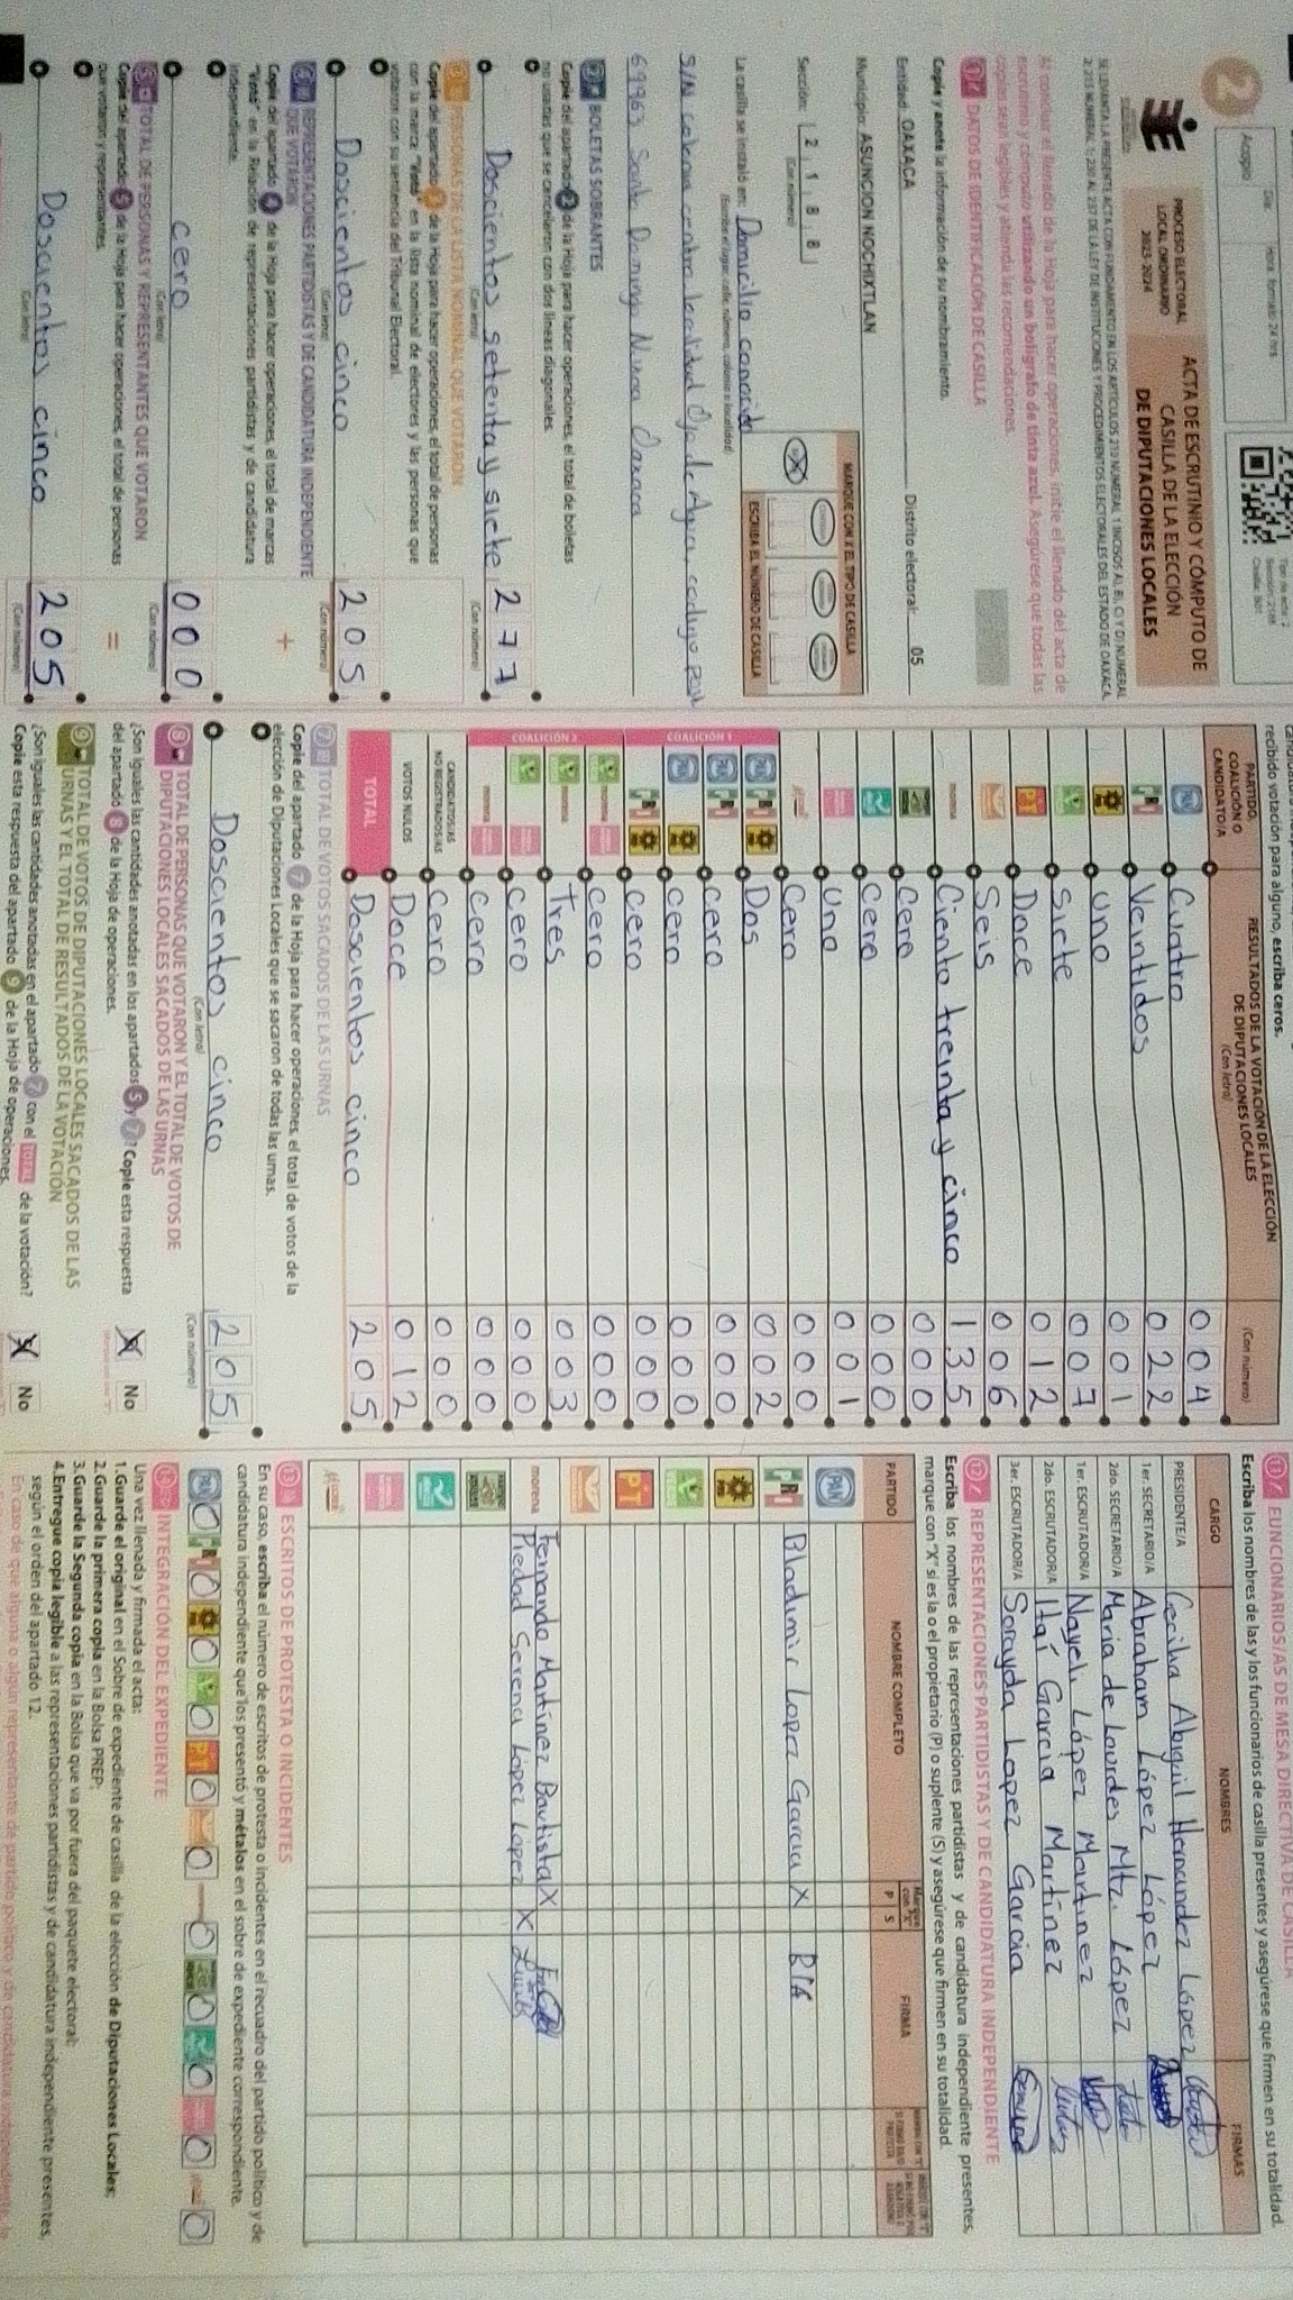 2
Acopio
Día:
Hora: formato 24 hrs.
Tipo de acta: 2
Sección: 2188
Casilla: B01
PROCESO ELECTORAL
LOCAL ORDINARIO
2023-2024
ACTA DE ESCRUTINIO Y CÓMPUTO DE
CASILLA DE LA ELECCIÓN
DE DIPUTACIONES LOCALES
Al concluir el llenado de la Hoja para hacer operaciones, inicie el llenado del acta de
escrutinio y cómputo utilizando un bolígrafo de tinta azul. Asegúrese que todas las
copias sean legibles y atienda las recomendaciones.
1 DATOS DE IDENTIFICACIÓN DE CASILLA
Copie y anote la información de su nombramiento.
Entidad: OAXACA Distrito electoral: 05
Municipio: ASUNCION NOCHIXTLAN
Sección: 2 1 8 8
(Con número)
MARQUE CON X EL TIPO DE CASILLA
X
ESCRIBA EL NÚMERO DE CASILLA
La casilla se instaló en: Domicilio conocido
(Escriba el lugar: calle, número, colonia o localidad)
S/N cabecera centro localidad Ojo de Agua, codigo post
69963 Santo Domingo Nuxaa Oaxaca
2 BOLETAS SOBRANTES
Copie del apartado 2 de la Hoja para hacer operaciones, el total de boletas
no usadas que se cancelaron con dos líneas diagonales.
Doscientos setenta y siete 277
(Con letra) (Con número)
3 PERSONAS DE LA LISTA NOMINAL QUE VOTARON
Copie del apartado 3 de la Hoja para hacer operaciones, el total de personas
con la marca "Votó" en la lista nominal de electores y las personas que
votaron con su sentencia del Tribunal Electoral.
Doscientos cinco 205
(Con letra) (Con número)
4 REPRESENTACIONES PARTIDISTAS Y DE CANDIDATURA INDEPENDIENTE
QUE VOTARON
Copie del apartado 4 de la Hoja para hacer operaciones, el total de marcas
"Votó" en la Relación de representaciones partidistas y de candidatura
independiente.
+
cero 000
(Con letra) (Con número)
5 TOTAL DE PERSONAS Y REPRESENTANTES QUE VOTARON
Copie del apartado 5 de la Hoja para hacer operaciones, el total de personas
que votaron y representantes.
=
Doscientos cinco 205
(Con letra) (Con número)
recibido votación para alguno, escriba ceros.
PARTIDO,
COALICIÓN O
CANDIDATO/A
RESULTADOS DE LA VOTACIÓN DE LA ELECCIÓN
DE DIPUTACIONES LOCALES
(Con letra)
(Con número)
PAN Cuatro 004
PRI Veintidos 022
PRD uno 001
siete 007
PT Doce 012
Seis 006
morena Ciento treinta y cinco 135
Cero 000
cero 000
uno 001
Cero 000
COALICIÓN 1
PAN PRI PRD Dos 002
PAN PRI cero 000
PAN PRD cero 000
PRI PRD cero 000
COALICIÓN 2
morena cero 000
morena Tres 003
cero 000
morena cero 000
CANDIDATOS/AS
NO REGISTRADOS/AS cero 000
VOTOS NULOS Doce 012
TOTAL Doscientos cinco 205
7 TOTAL DE VOTOS SACADOS DE LAS URNAS
Copie del apartado 7 de la Hoja para hacer operaciones, el total de votos de la
elección de Diputaciones Locales que se sacaron de todas las urnas.
Doscientos cinco 205
(Con letra) (Con número)
8 TOTAL DE PERSONAS QUE VOTARON Y EL TOTAL DE VOTOS DE
DIPUTACIONES LOCALES SACADOS DE LAS URNAS
¿Son iguales las cantidades anotadas en los apartados 5 y 7? Copie esta respuesta
del apartado 8 de la Hoja de operaciones.
X No
9 TOTAL DE VOTOS DE DIPUTACIONES LOCALES SACADOS DE LAS
URNAS Y EL TOTAL DE RESULTADOS DE LA VOTACIÓN
¿Son iguales las cantidades anotadas en el apartado 7 con el TOTAL de la votación?
Copie esta respuesta del apartado 9 de la Hoja de operaciones.
X No
11 FUNCIONARIOS/AS DE MESA DIRECTIVA DE CASILLA
Escriba los nombres de las y los funcionarios de casilla presentes y asegúrese que firmen en su totalidad.
CARGO NOMBRES FIRMAS
PRESIDENTE/A Cecilia Abiguil Hernandez López
1er. SECRETARIO/A Abraham López López
2do. SECRETARIO/A Maria de Lourdes Mtz. López
1er. ESCRUTADOR/A Nayeli López Martinez
2do. ESCRUTADOR/A Itaí Garcia Martínez
3er. ESCRUTADOR/A Sorayda Lopez Garcia
12 REPRESENTACIONES PARTIDISTAS Y DE CANDIDATURA INDEPENDIENTE
Escriba los nombres de las representaciones partidistas y de candidatura independiente presentes,
marque con "X" si es la o el propietario (P) o suplente (S) y asegúrese que firmen en su totalidad.
PARTIDO NOMBRE COMPLETO Marque con "X" P S FIRMA
PAN
PRI Bladimir Lopez Garcia X
PRD
PT
morena Fernando Martínez Bautista X
Piedad Serena López Lopez X
13 ESCRITOS DE PROTESTA O INCIDENTES
En su caso, escriba el número de escritos de protesta o incidentes en el recuadro del partido político y de
candidatura independiente que los presentó y métalos en el sobre de expediente correspondiente.
PAN 0 PRI 0 PRD 0 0 PT 0 0 morena 0 0 0 0 0
14 INTEGRACIÓN DEL EXPEDIENTE
Una vez llenada y firmada el acta:
1.Guarde el original en el Sobre de expediente de casilla de la elección de Diputaciones Locales;
2.Guarde la primera copia en la Bolsa PREP;
3.Guarde la Segunda copia en la Bolsa que va por fuera del paquete electoral;
4.Entregue copia legible a las representaciones partidistas y de candidatura independiente presentes,
según el orden del apartado 12.